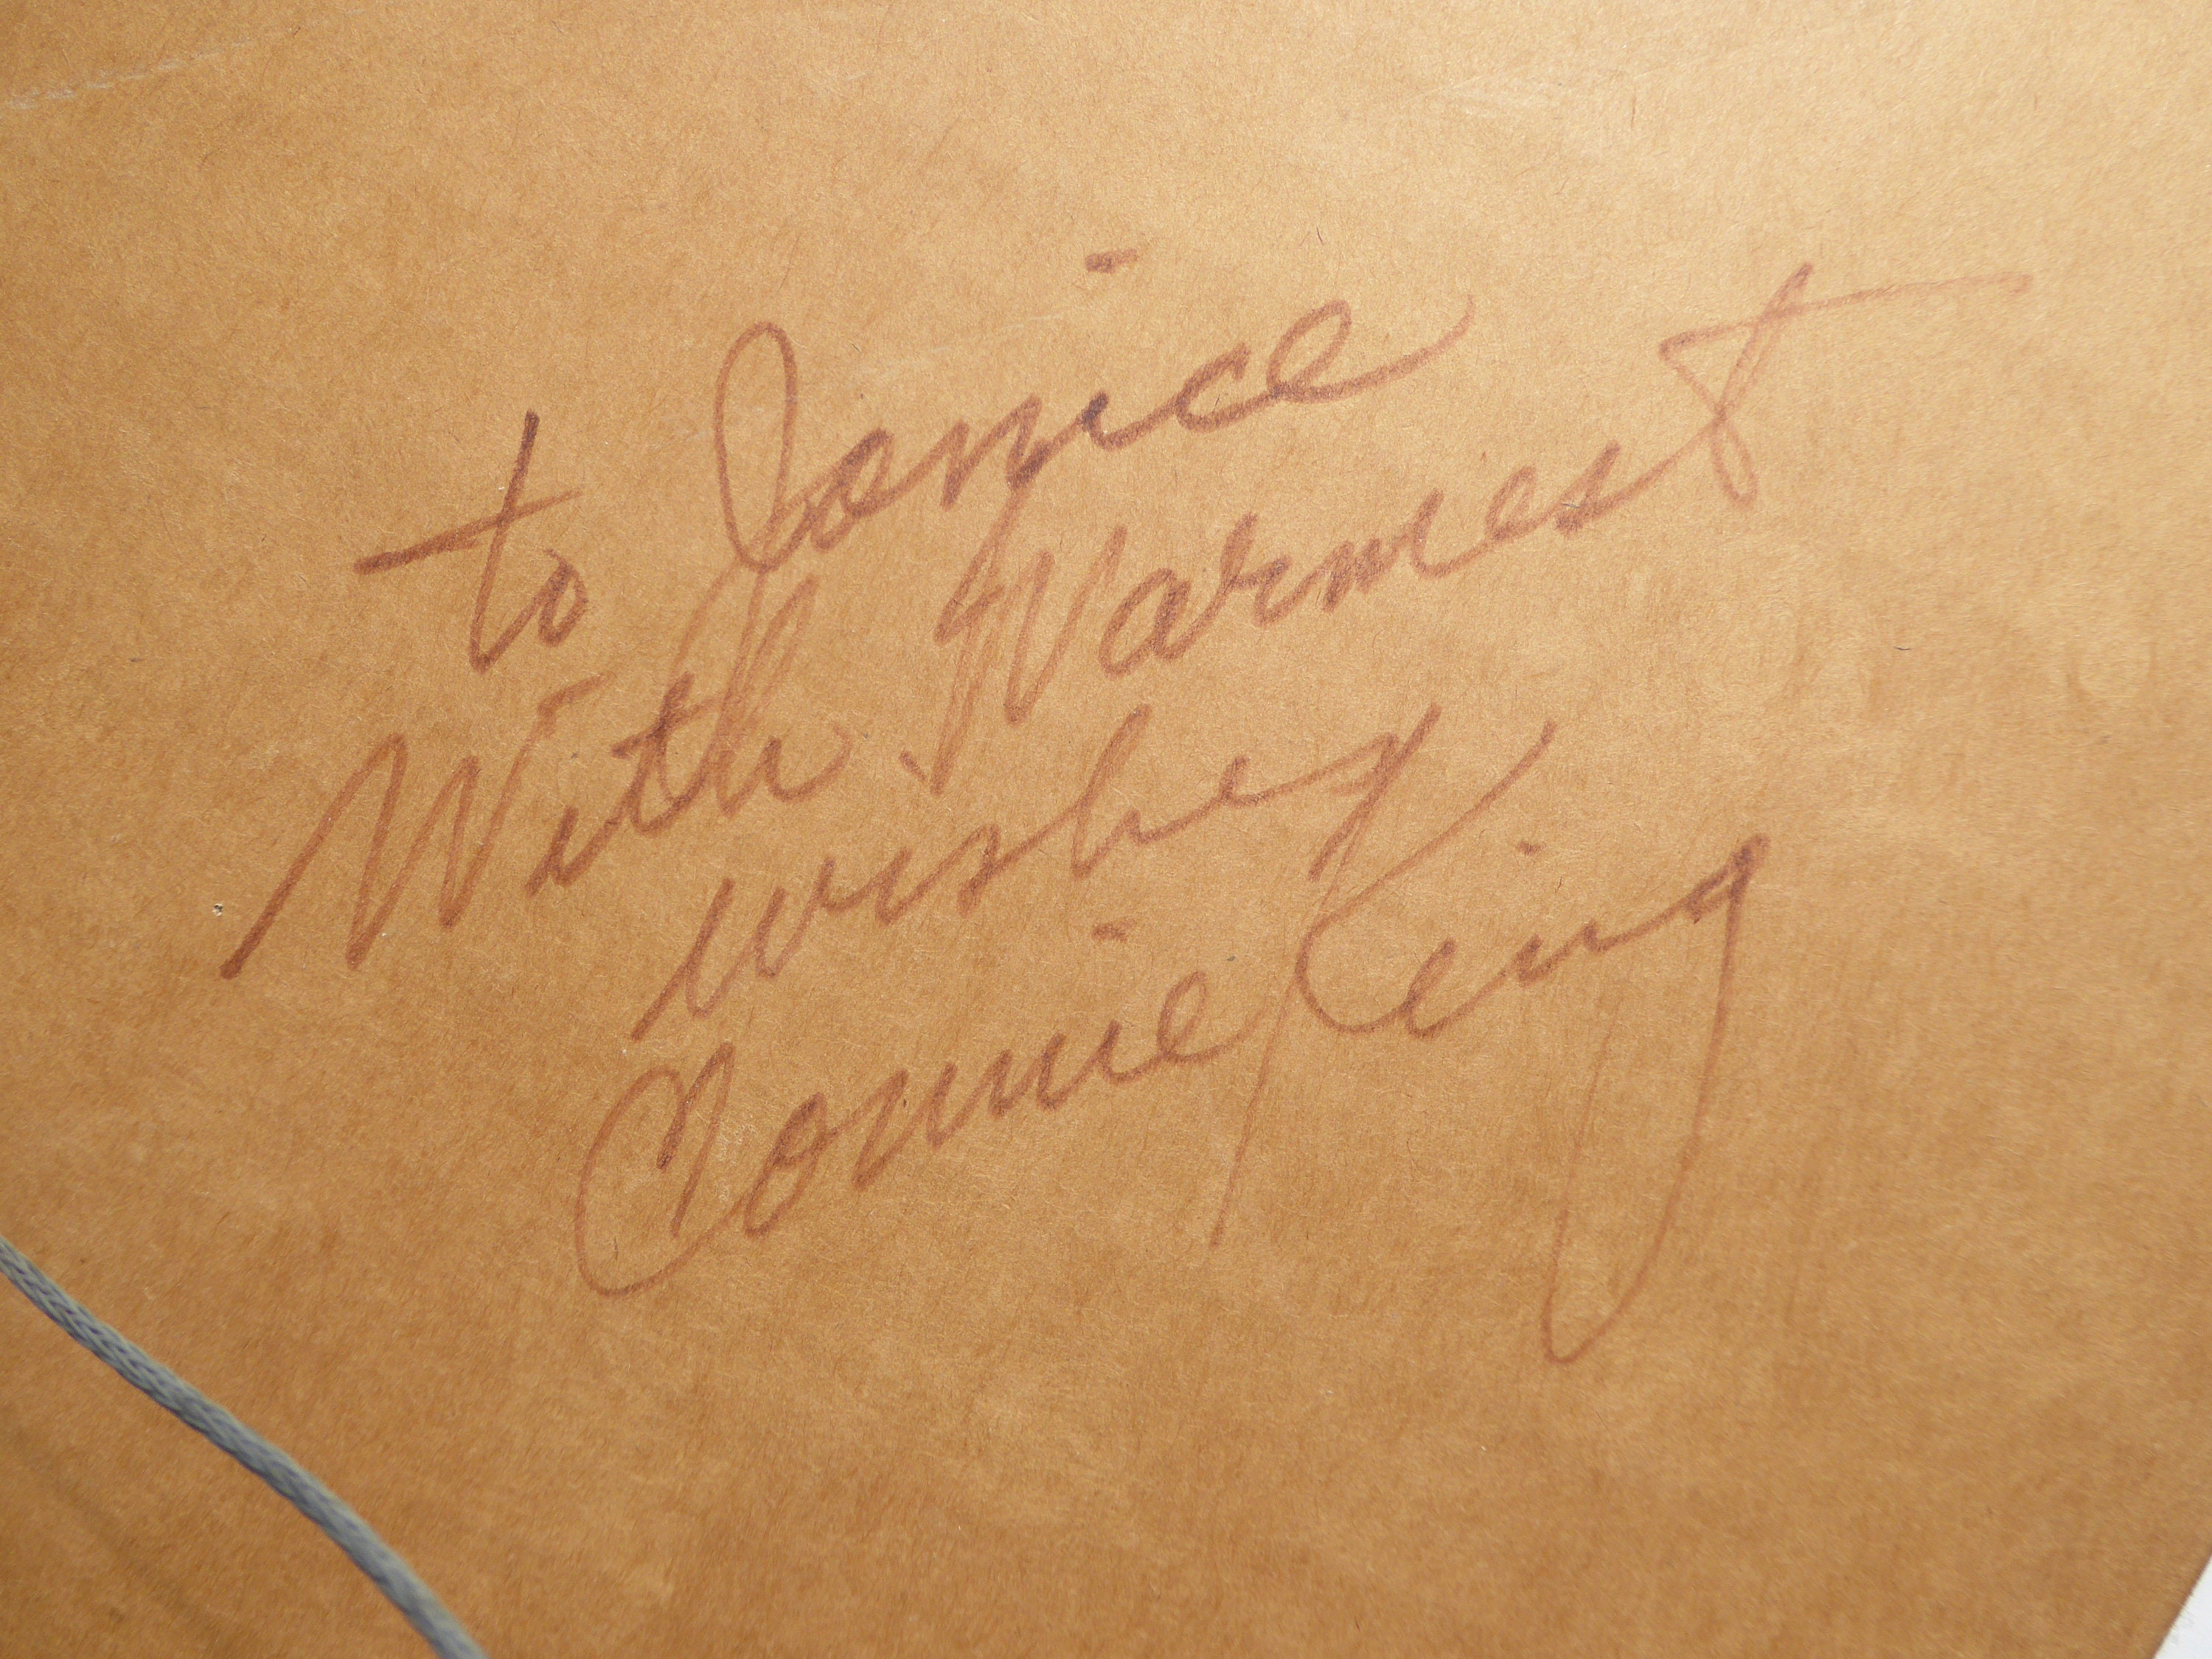 to Janice
With Warmest
wishes
Connie King